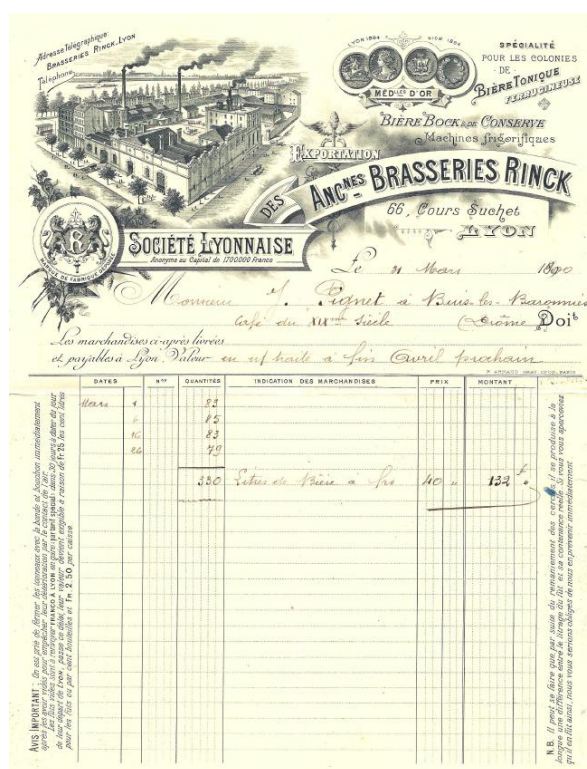 Adresse Télégraphique:
BRASSERIES RINCK, LYON
Téléphone
LYON 1894
MÉD.LES D'OR
SPÉCIALITÉ
POUR LES COLONIES
- DE -
BIÈRE TONIQUE
FERRUGINEUSE
BIÈRE BOCK & DE CONSERVE
Machines frigorifiques
EXPORTATION
DES ANC.NES BRASSERIES RINCK
66, Cours Suchet
LYON
SOCIÉTÉ LYONNAISE
Anonyme au Capital de 1700000 Francs
MARQUE DE FABRIQUE DÉPOSÉE
Le 31 Mars 1890
Monsieur J. Pignet à Buis-les-Baronnies
Café du XIXme Siècle (Drôme) Doit
Les marchandises ci-après livrées
et payables à Lyon. Valeur en n/ traite à fin Avril prochain
DATES Nos QUANTITÉS INDICATION DES MARCHANDISES PRIX MONTANT
Mars 1 83
6 85
16 83
26 79
330 Litres de Bière à frs 40 " 132 f "
AVIS IMPORTANT: On est prié de fermer les tonneaux avec la bonde et bouchon immédiatement
après les avoir vidés pour empêcher leur détérioration par le contact de l'air.
Les fûts vides sont à renvoyer FRANCO À LYON en gare (tarif spécial) dans 30 jours à dater du jour
de leur départ de Lyon, passé ce délai, leur valeur devient exigible à raison de Fr 25 les cent litres
pour les fûts ou par cent bouteilles et Fr. 2,50 par caisse.
N.B. Il peut se faire que par suite du remaniement des cercles, il se produise à la
longue une différence entre le titrage du fût et sa contenance réelle. Si vous vous aperceviez
qu'il en fût ainsi, nous vous serions obligés de nous en prévenir immédiatement